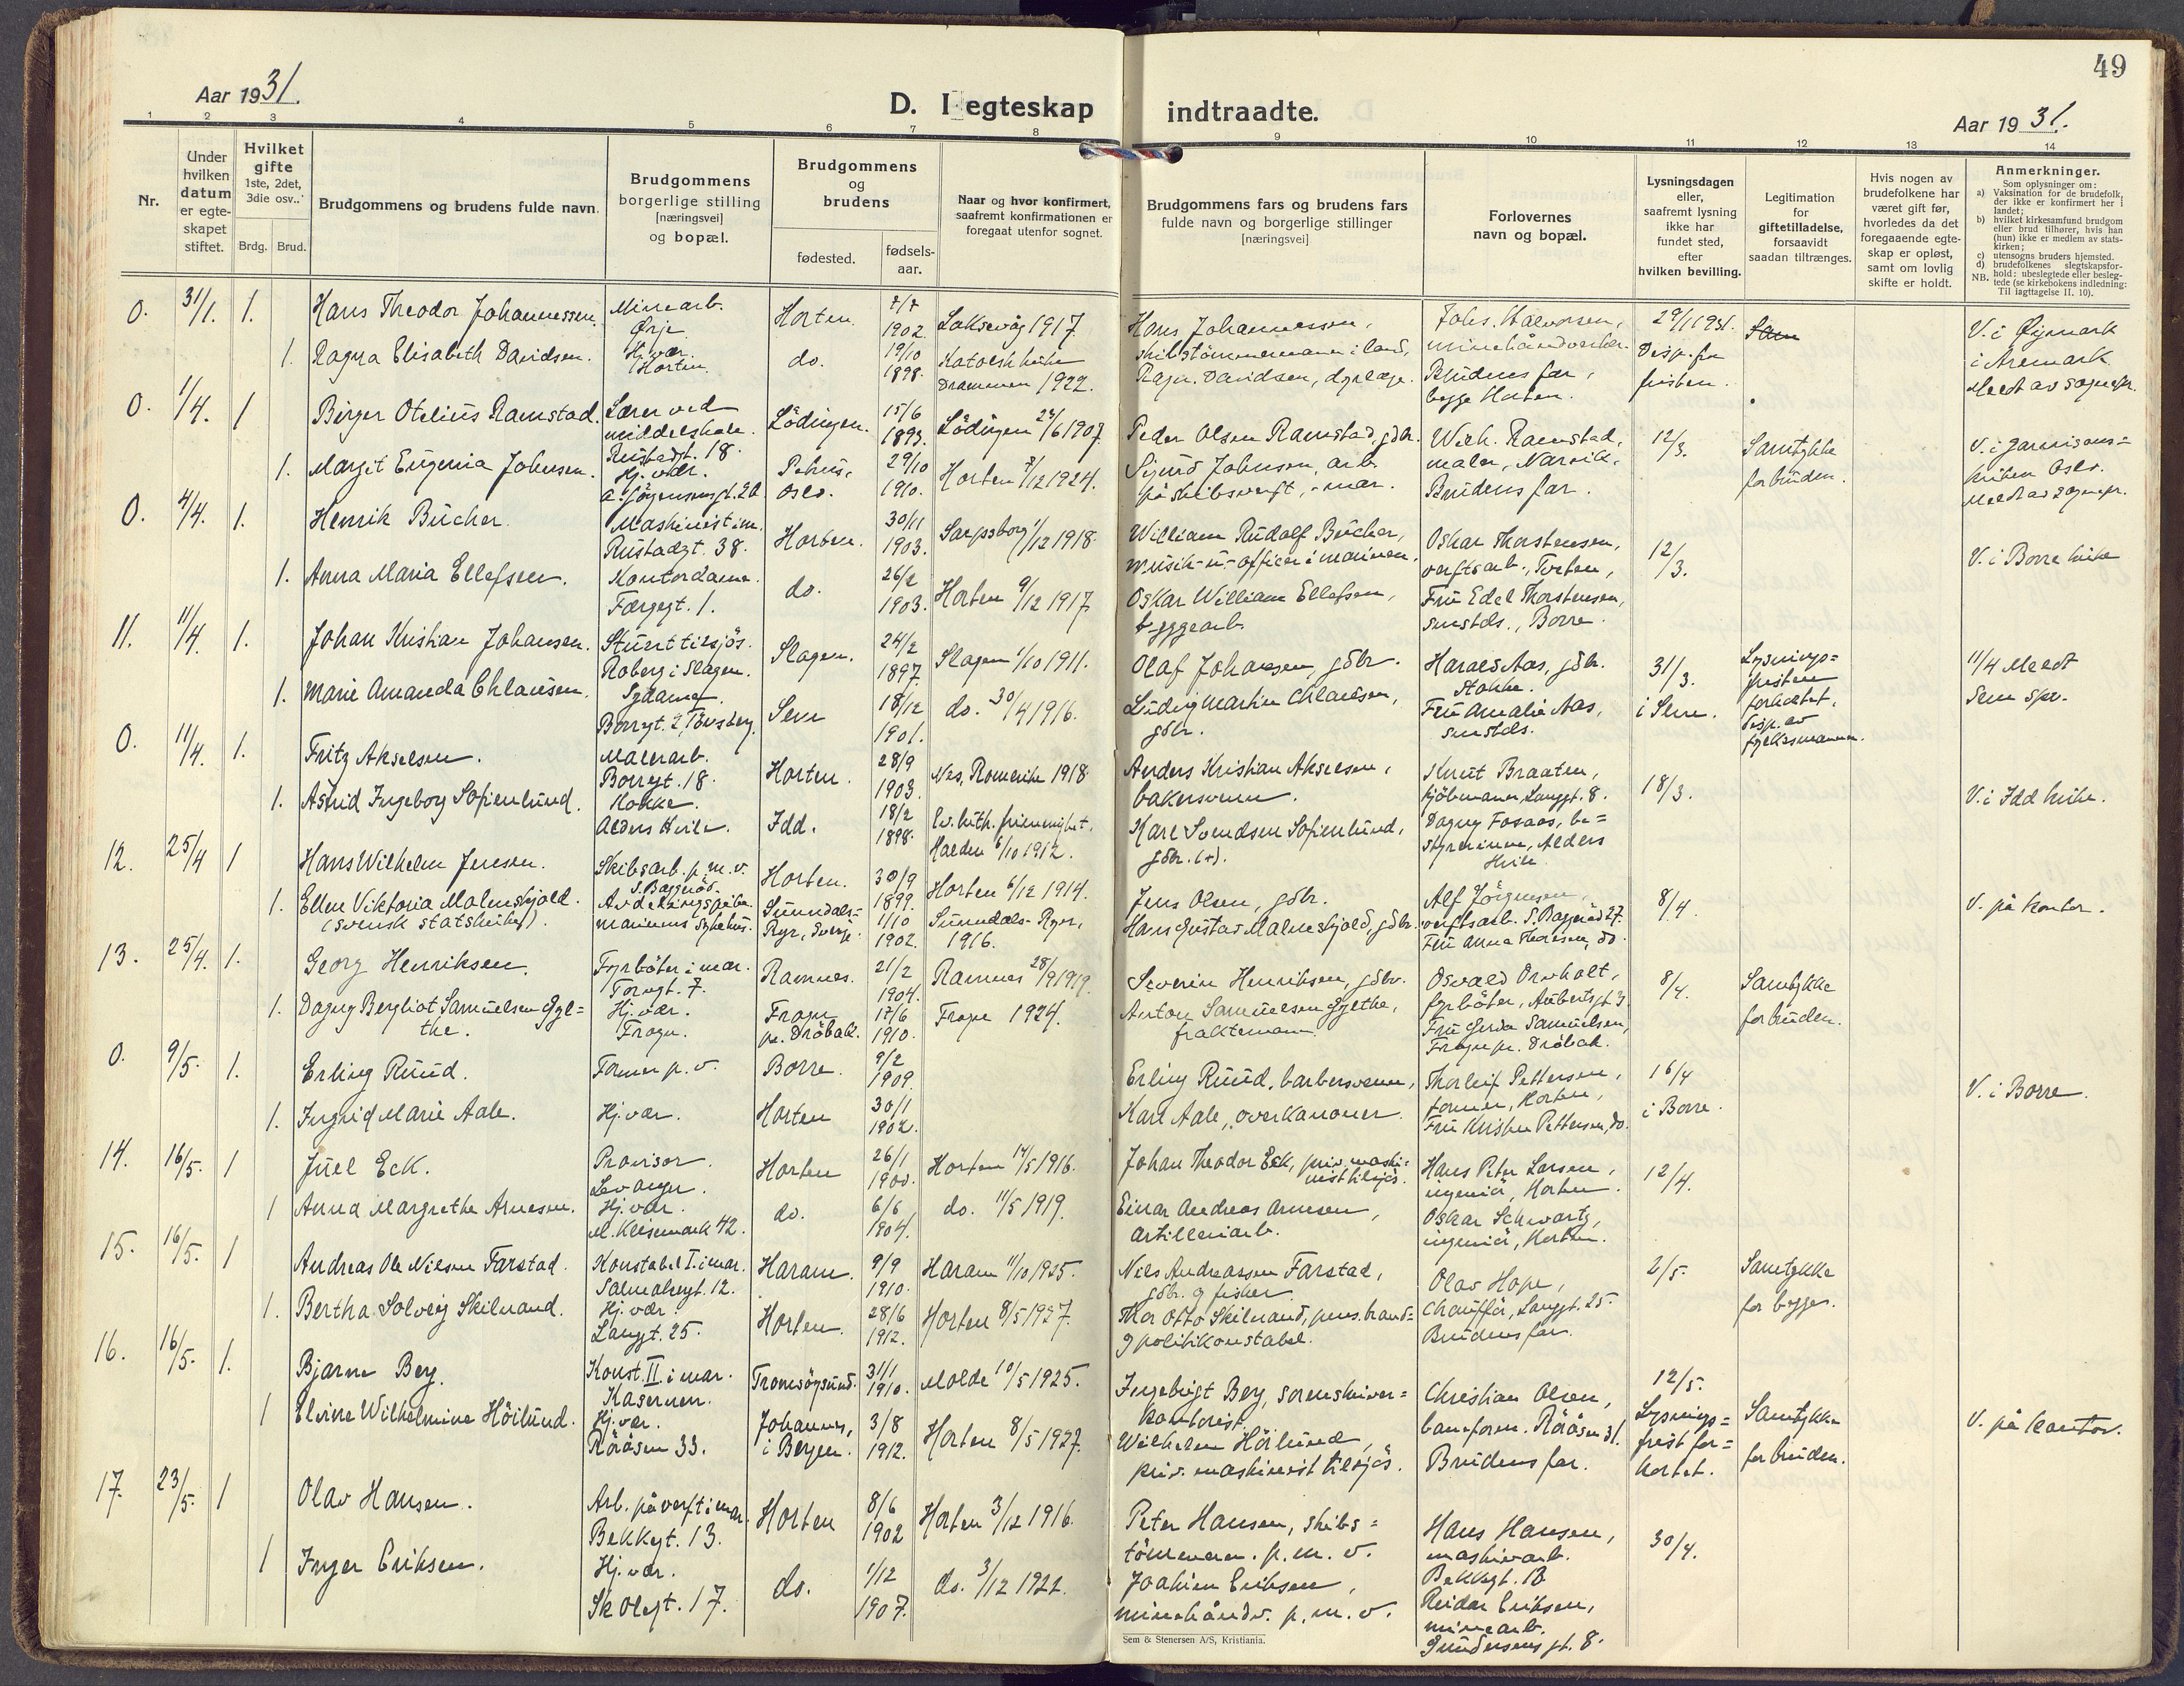 49
Aar 1931.
D. I egteskap indtraadte.
Aar 1931.
1 2 3 4 5 6 7 8 9 10 11 12 13 14
Nr.
Under hvilken datum er egte-skapet stiftet.
Hvilket gifte 1ste, 2det, 3die osv..
Brdg. Brud.
Brudgommens og brudens fulde navn.
Brudgommens borgerlige stilling [næringsvei] og bopæl.
Brudgommens og brudens
fødested.
fødsels-aar.
Naar og hvor konfirmert, saafremt konfirmationen er foregaat utenfor sognet.
Brudgommens fars og brudens fars fulde navn og borgerlige stillinger [næringsvei]
Forlovernes navn og bopæl.
Lysningsdagen eller, saafremt lysning ikke har fundet sted, efter hvilken bevilling.
Legitimation for giftetilladelse, forsaavidt saadan tiltrænges.
Hvis nogen av brudefolkene har været gift før, hvorledes da det foregaaende egte-skap er opløst, samt om lovlig skifte er holdt.
Anmerkninger.
Som oplysninger om:
a) Vaksination for de brudefolk, der ikke er konfirmert her i landet;
b) hvilket kirkesamfund brudgom eller brud tilhører, hvis han (hun) ikke er medlem av stats-kirken;
c) utensogns bruders hjemsted.
d) brudefolkenes slegtskapsfor-hold: ubeslegtede eller besleg-tede (se kirkebokens indledning:
NB. Til Iagttagelse II. 10).
0. 31/1. 1. Hans Theodor Johannessen. Minearb. Ørje Horten. 7/7 1902. Laksevåg 1917. Hans Johannessen, skibstømmermann i land, Johs. Halvorsen, minehåndverker. 29/1 1931. Disp. for fristen. Sam V. i Øymark i Aremark Meldt av sognepr.
1. Ragna Elisabeth Davidsen. Hj. vær. Horten. do. 19/10 1898. Katolsk kirke Drammen 1922. Ragn. Davidsen, dyrlæge. Brudens far, begge Horten.
0. 1/4. 1 Birger Otelius Ramstad. Lærer ved middelskole. Rustadgt. 18. Lödingen. 15/6 1893. Lödingen 24/6 1907. Peder Olsen Ramstad, gdbr. Wilh. Ramstad, maler, Narvik. 12/3. Samtykke for bruden. V. i Garnisons= kirken Oslo. Meldt av sognepr.
1. Margit Eugenia Johnsen. Hj. vær. Petrus, Oslo. 29/10 1910. Horten 7/12 1924. Sigurd Johnsen, arb. på skibsverft, -mar. Brudens far.
0. 4/4. 1. Henrik Bücher. Maskinist i m. Rustadgt. 38. Horten. 30/11 1903. Sarpsborg 1/12 1918. William Rudolf Bücher, musik-u-officer i marinen. Oskar Thorstensen, verftsarb., Torten, 12/3. V. i Borre kirke
1. Anna Maria Ellefsen. Kontordame. Færgegt. 1. do. 26/2 1903. Horten 9/12 1917 Oskar William Ellefsen, byggearb. Fru Edel Thorstensen, smstds., Borre.
11. 11/4. 1. Johan Kristian Johansen. Stuert tilsjös. Roberg i Slagen. Slagen. 24/2 1897. Slagen 1/10 1911. Olaf Johansen, gdbr. Harald Aas, gdbr. Stokke. 31/3. i Slagen. Lysnings= fristen forkortet. disp. av fylkesmannen. 11/4 Meldt Sem spr.
1. Marie Amanda Chlausen. Sydame Borregt. 2, Tönsberg. Sem 18/12 1901. do. 30/4 1916. Ludvig Martin Chlausen, gdbr. Fru Amalie Aas, smstds.
0. 11/4. 1. Fritz Akselsen. Malerarb. Borregt. 18. Horten. 28/9 1903. Nes, Romerike 1918 Anders Kristian Akselsen, bakersvenn. Knut Braaten, kjöbmann, Langgt. 8. 18/3. V. i Idd kirke.
1. Astrid Ingeborg Sofienlund. Kokke. Alders Hvile. Idd. 18/2 1898. Ev. luth. frimenighet, Halden 6/10 1912. Karl Svendsen Sofienlund, gdbr. (+). Dagny Fosaas, be= styrerinne, Alders Hvile.
12. 25/4 1 Hans Wilhelm Jensen. Skibsarb. p. m. v. S. Baggeröd. Horten. 30/9 1899. Horten 6/12 1914. Jens Olsen, gdbr. Alf Jörgensen, verftsarb. S. Baggeröd 27. 8/4. V. på kontor.
1. Ellen Viktoria Malmskjold. (svensk statskirke). Avdelingspike marinens sykehus. Sunndals= Ryr, Sverje. 1/10 1902. Sunndals-Ryr, 1916. Hans Gustav Malmskjold, gdbr. Fru Anna Thoresen, do.
13. 25/4. 1. Georg Henriksen. Fyrböter i mar. Torvgt. 7. Ramnes. 21/2 1904. Ramnes 28/9 1919. Severin Henriksen, gdbr. Osvald Ornholt, fyrböter, Aubertsgt 3. 8/4. Samtykke for bruden.
1. Dagny Bergliot Samuelsen Gyl= the. Hj. vær. Frogn. Frogn pr. Dröbak. 17/6 1910. Frogn 1924. Anton Samuelsen Gylthe, fraktemann. Fru Gerda Samuelsen, Frogn pr. Dröbak.
0. 9/5. 1. Erling Ruud. Former p. v. Borre. 9/2 1909. Erling Ruud, barbersvenn, Thorleif Pettersen, former, Horten, 16/4 i Borre. V. i Borre.
1. Ingrid Marie Aale. Hj. vær. Horten 30/1 1902. Karl Aale, overkanoner. Fru Kristen Pettersen, do.
14. 16/5. 1 Juel Eck. Provisor. Levanger. Horten 26/1 1900. Horten 14/5 1916. Johan Theodor Eck, priv. maski= nist tilsjös. Hans Peter Larsen, ingeniör, Horten. 12/4.
1 Anna Margrethe Arnesen. Hj. vær. M. Keisemark 42. do. 6/6 1904. do. 11/5 1919. Einar Andreas Arnesen, artilleriarb. Oskar Schwartz, ingeniör, Horten.
15. 16/5. 1 Andreas Ole Nilsen Farstad. Konstabel I. i mar. Haram. 9/9 1910. Haram 11/10 1925. Nils Andreassen Farstad, gdbr. og fisker. Olav Hope, Chauffør, Langgt. 25. 2/5. Samtykke for begge.
1. Bertha Solveig Skilnand. Hj. vær. Langgt. 25. Horten. 28/6 1912. Horten 8/5 1927. Thor Otto Skilnand, pens. brand= og politikonstabel. Brudens far.
16. 16/5. 1. Bjarne Berg. Konst. II. i mar. Kasernen. Tromsöysund. 31/1 1910. Molde 10/5 1925. Ingebrigt Berg, sorenskriver= kontorist. Christian Olsen, baneform. Råråsen 31. 12/5. Lysnings= frist for= kortet. Samtykke for bruden. V. på kontor.
1 Elvine Wilhelmine Höilund. Hj. vær. Råråsen 33. Johannes, i Bergen. 3/8 1912. Horten 8/5 1927. Wilhelm Höilund, priv. maskinist tilsjös. Brudens far.
17. 23/5. 1 Olav Hansen. Arb. på verft i mar. Bekkegt. 13. Horten 8/6 1902 Horten 3/12 1916. Peter Hansen, skibs= tömmerm. p. m. v. Hans Hansen, maskinarb. Bekkegt. 13 30/4.
1 Inger Eriksen. Hj. vær. Skolegt. 17. do. 1/12 1907. do. 3/12 1922. Joakim Eriksen, minehåndv. p. m. v. Reidar Eriksen, minearb. Gundersens gt. 8.
Sem & Stenersen A/S, Kristiania.